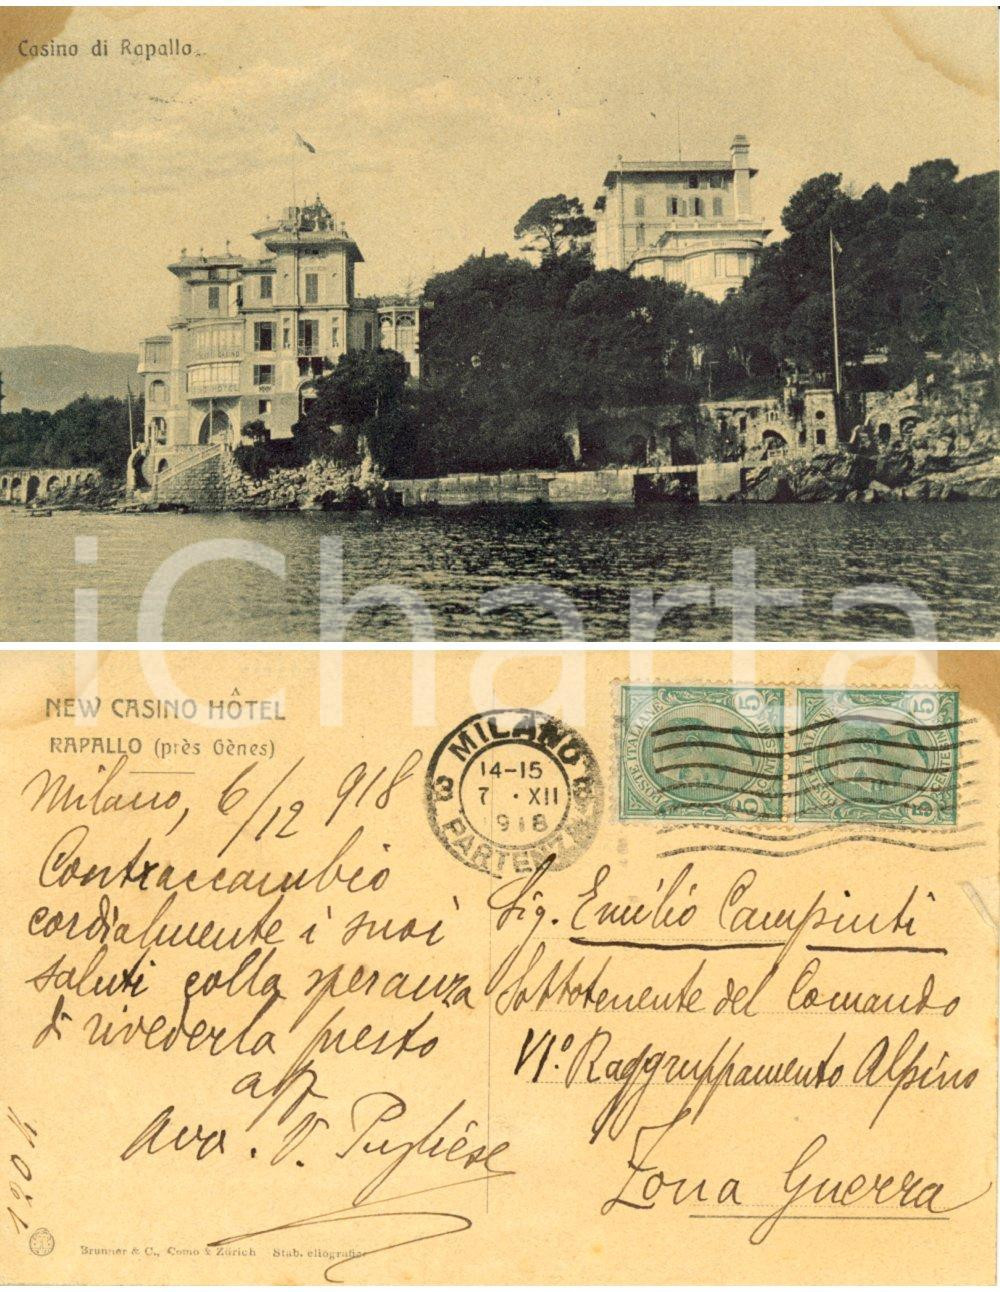 Casino di Rapallo.
CASINO
HOTEL
iCharta
NEW CASINO HÔTEL
RAPALLO (près Gènes)
MILANO
14-15
7 · XII
1918
PARTENZA
POSTE ITALIANE
5 CENTESIMI 5
POSTE ITALIANE
5 CENTESIMI 5
Milano, 6/12 918
Contraccambio
cordialmente i suoi
saluti colla speranza
di rivederla presto
aff
Avv. V. Pugliese
Sig. Emilio Campinti
Sottotenente del Comando
VI° Raggruppamento Alpino
Zona Guerra
Brunner & C., Como & Zürich Stab. eliografico